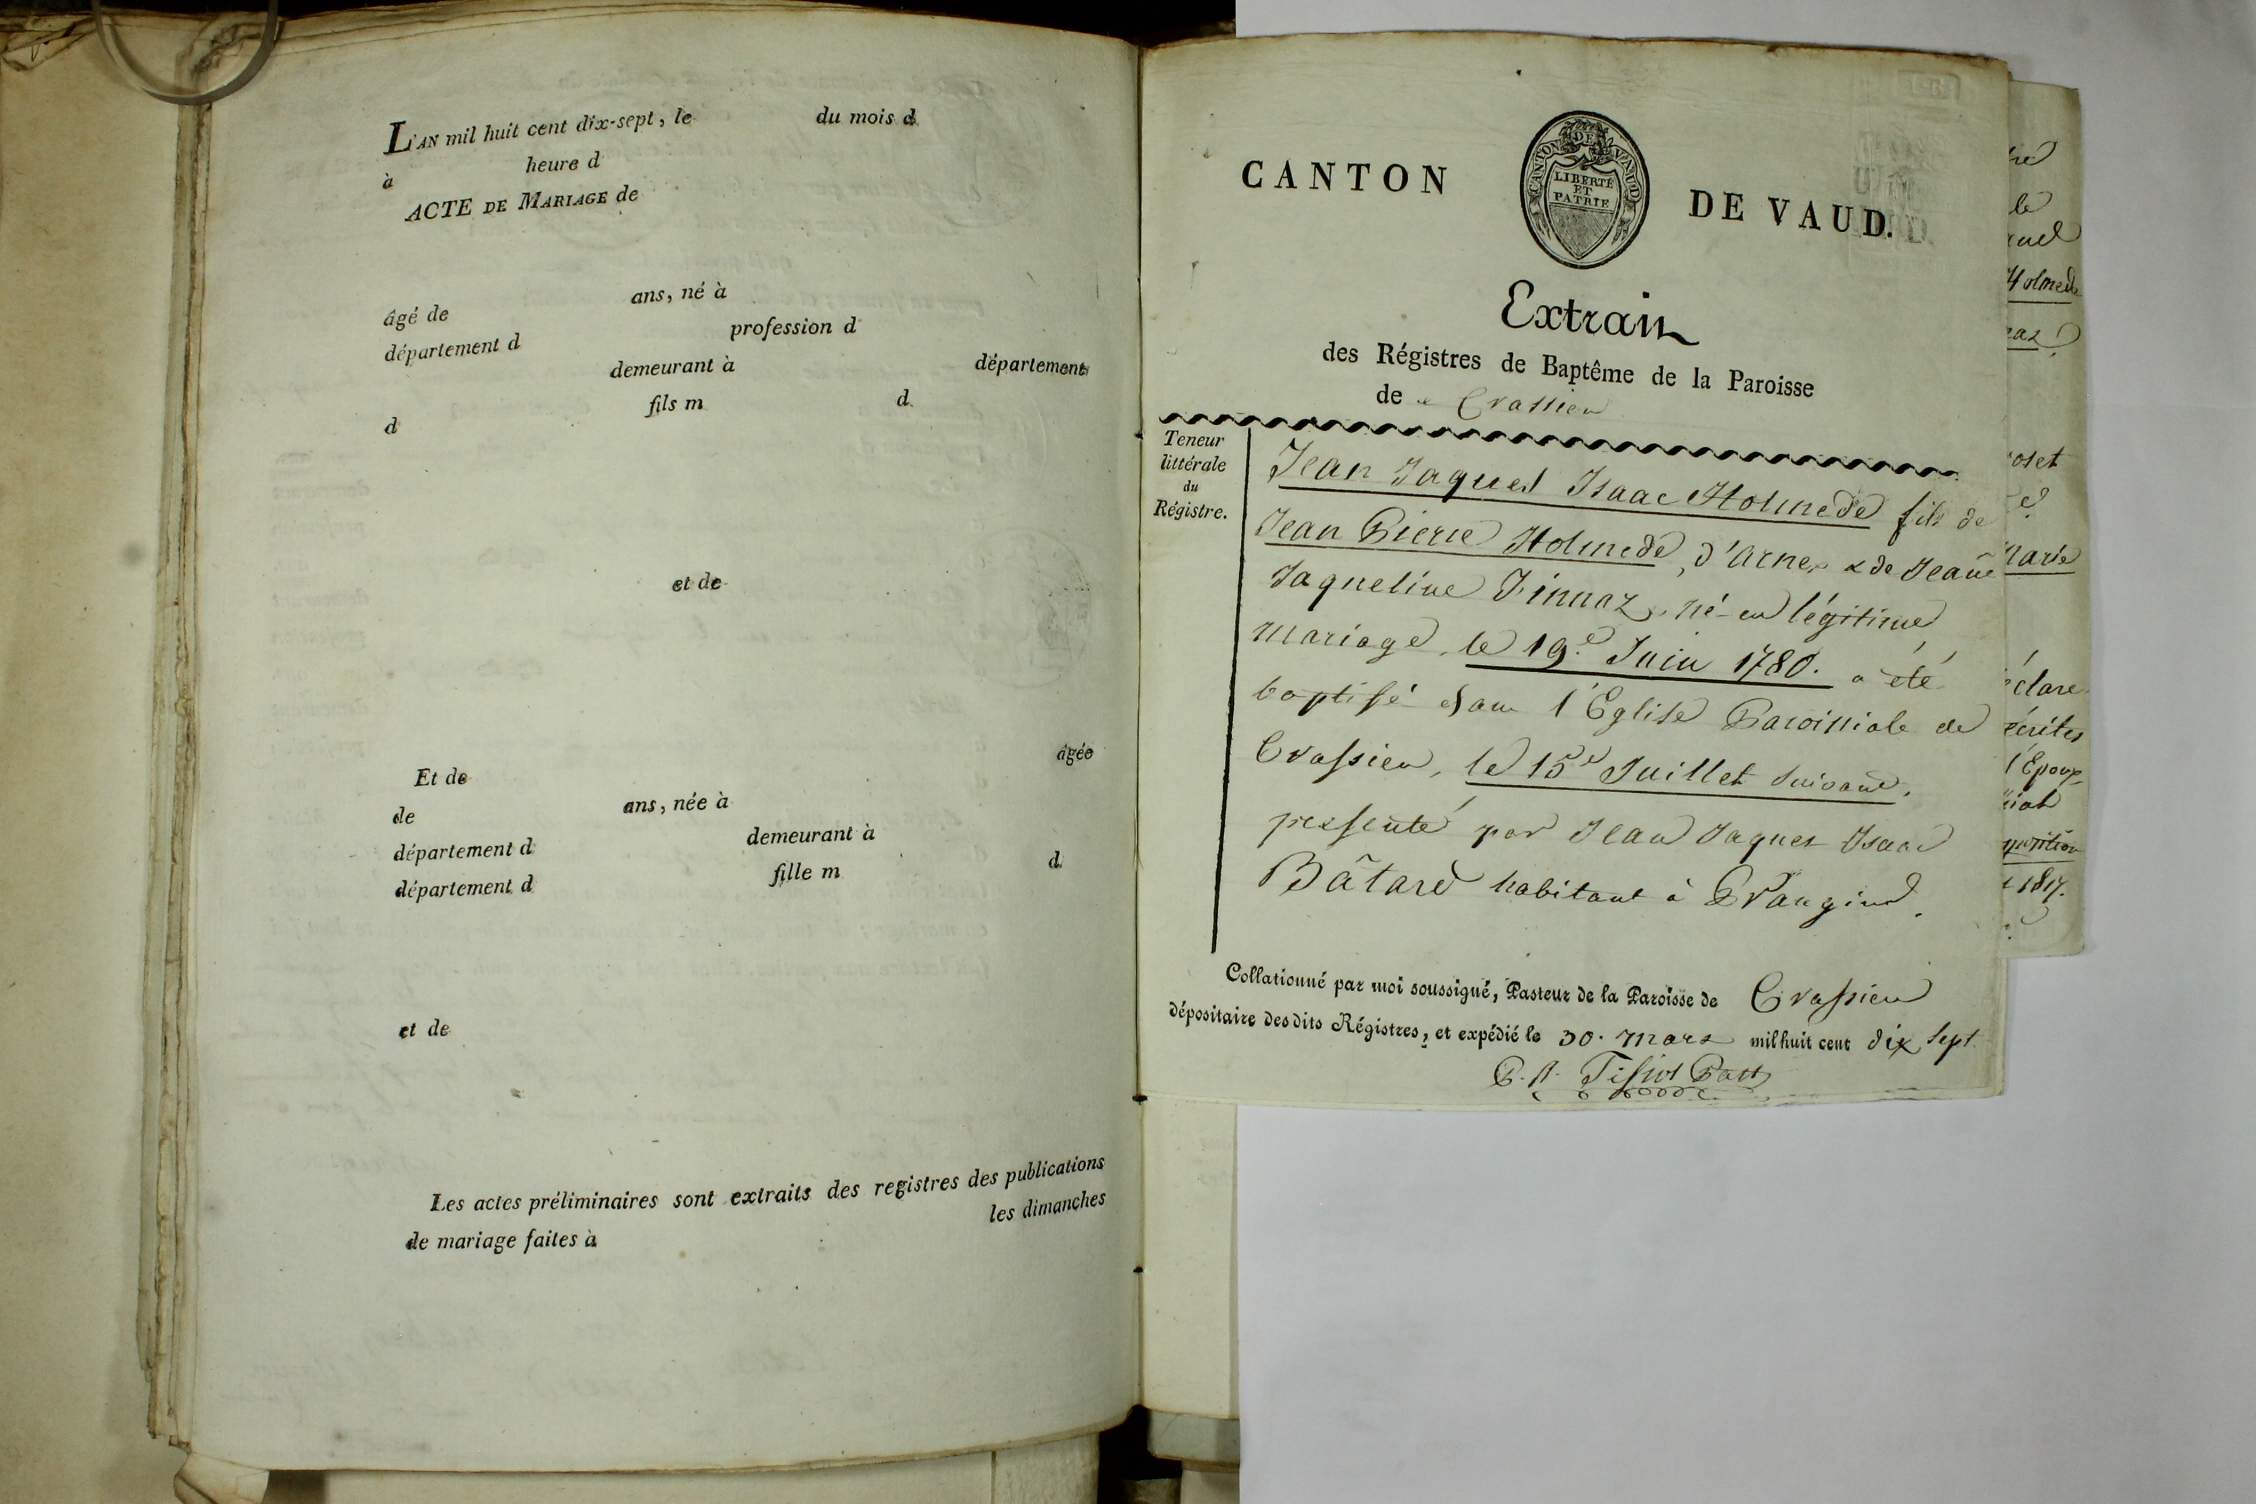 L'AN mil huit cent dix-sept, le du mois d
à heure d
ACTE DE MARIAGE de
âgé de ans, né à
département d profession d
demeurant à département
d fils m d
et de
Et de âgée
de ans, née à
département d demeurant à
département d fille m d
et de
Les actes préliminaires sont extraits des registres des publications
de mariage faites à les dimanches
CANTON DE VAUD.
CANTON DE VAUD
LIBERTÉ
ET
PATRIE
Extrait
des Régistres de Baptême de la Paroisse
de Crassier
Teneur
littérale
du
Régistre.
Jean Jaques Isaac Holmede fils de
Jean Pierre Holmede, d'Arnex & de Jeañe
Jaqueline né en légitime
mariage, le 19.e Juin 1780. a été
baptisé dans l'Eglise Paroissiale de
Crassier, le 15e Juillet suivant,
présenté par Jean Jaques Isaac
Bâtard habitant à Prangins.
Collationné par moi soussigné, Pasteur de la Paroisse de Crassier
dépositaire desdits Régistres, et expédié le 30. mars mil huit cent dix sept
Tissot Past
le
Holmede
Marie
éclare
l'Epoux
1817.